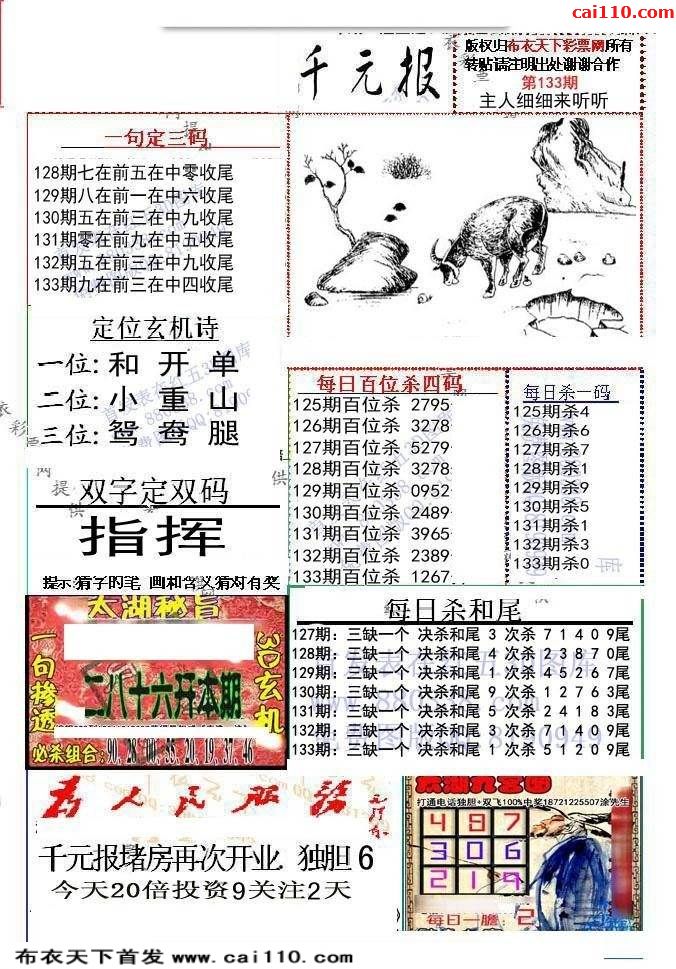 cai110.com
千元报
版权归布衣天下彩票网所有
转贴请注明出处谢谢合作
第133期
主人细细来听听
一句定三码
128期七在前五在中零收尾
129期八在前一在中六收尾
130期五在前三在中九收尾
131期零在前九在中五收尾
132期五在前三在中九收尾
133期九在前三在中四收尾
定位玄机诗
一位:和开单
二位:小重山
三位:鸳鸯腿
双字定双码
指挥
提示:猜字的笔画和含义猜对有奖
每日百位杀四码
125期百位杀 2795
126期百位杀 3278
127期百位杀 5279
128期百位杀 3278
129期百位杀 0952
130期百位杀 2489
131期百位杀 3965
132期百位杀 2389
133期百位杀 1267
每日杀一码
125期杀4
126期杀6
127期杀7
128期杀1
129期杀9
130期杀5
131期杀1
132期杀3
133期杀0
太湖秘旨
一句掺透
3D玄机
二八十六开本期
必杀组合:90.28.00.55.20.19.37.46
每日杀和尾
127期: 三缺一个 决杀和尾 3 次杀 7 1 4 0 9尾
128期: 三缺一个 决杀和尾 4 次杀 2 3 8 7 0尾
129期: 三缺一个 决杀和尾 1 次杀 4 5 2 6 7尾
130期: 三缺一个 决杀和尾 9 次杀 1 2 7 6 3尾
131期: 三缺一个 决杀和尾 5 次杀 2 4 1 8 3尾
132期: 三缺一个 决杀和尾 3 次杀 7 1 4 0 9尾
133期: 三缺一个 决杀和尾 6 次杀 5 1 2 0 9尾
为人民服务
千元报堵房再次开业 独胆6
今天20倍投资9关注2天
打通电话独胆+双飞100%中奖18721225507涂先生
4 9 7
3 0 6
2 1 9
每日一胆: 2
布衣天下首发 www.cai110.com